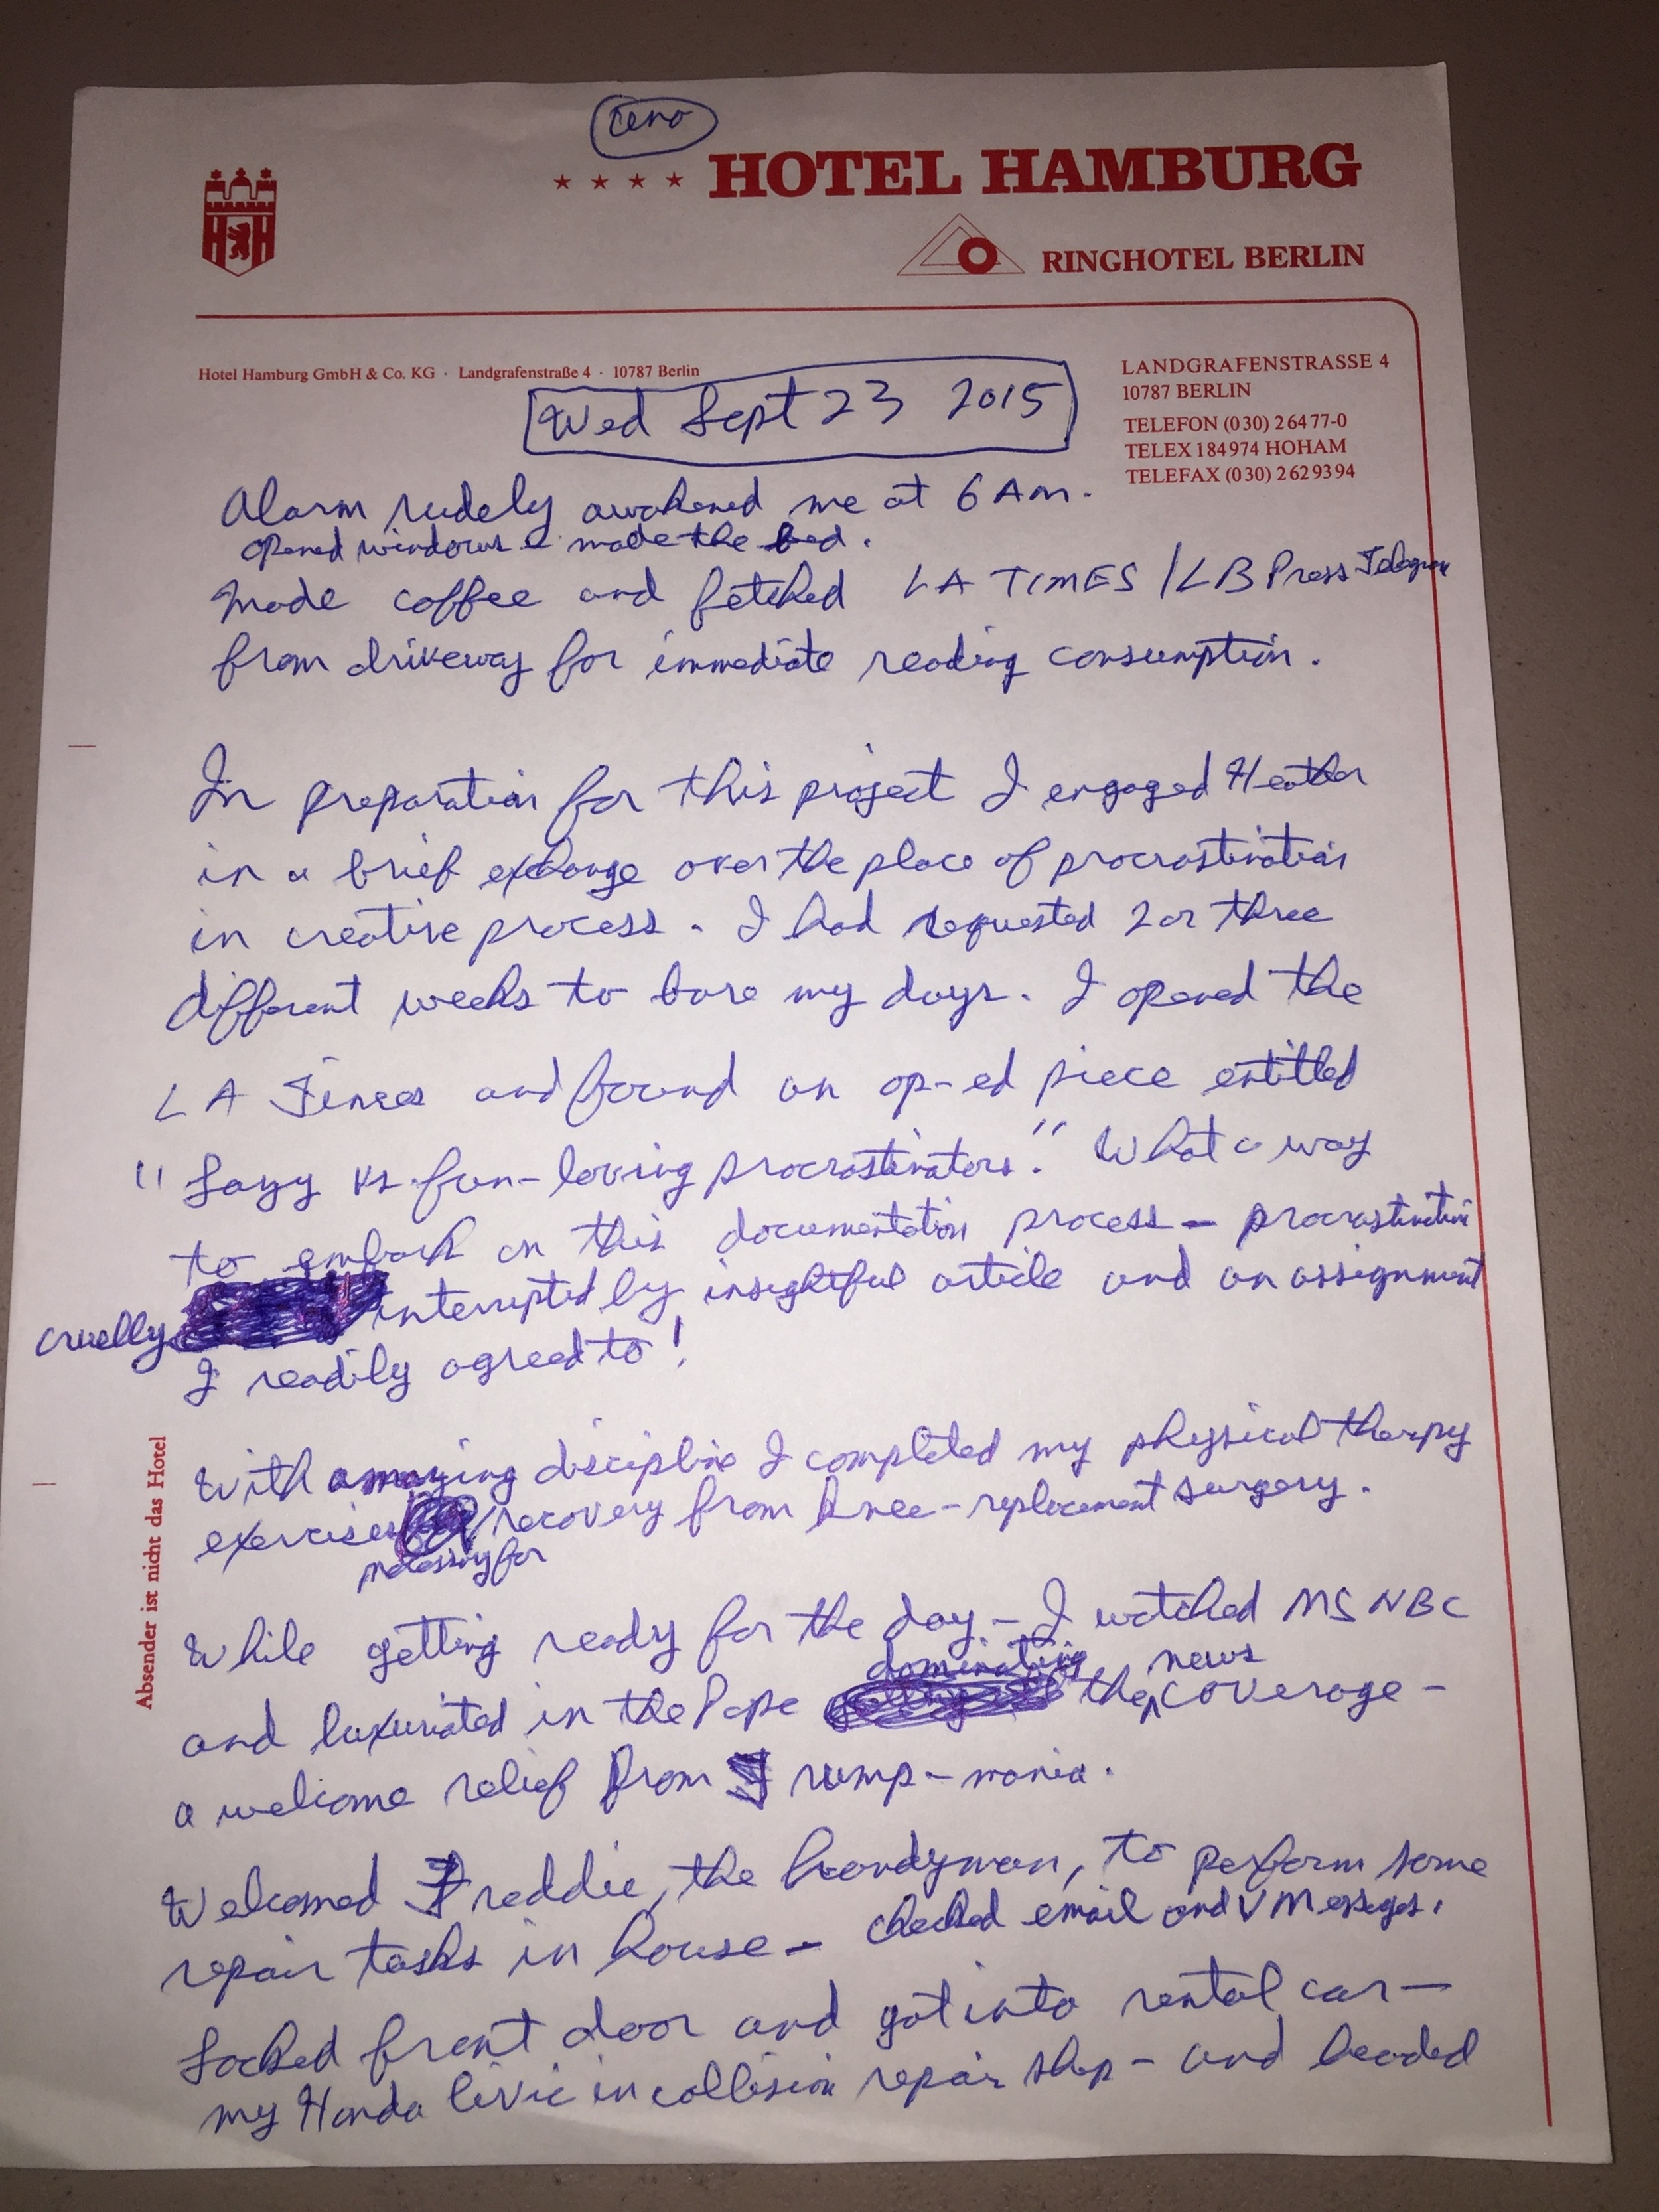 HOTEL HAMBURG
RINGHOTEL BERLIN
Hotel Hamburg GmbH & Co. KG · Landgrafenstraße 4 · 10787 Berlin
LANDGRAFENSTRASSE 4
10787 BERLIN
TELEFON (030) 26477-0
TELEX 184974 HOHAM
TELEFAX (030) 2629394
Wed Sept 23 2015
Alarm rudely awakened me at 6 Am.
opened windows & made the bed.
Made coffee and fetched LA TIMES / LB Press Telegram
from driveway for immediate reading consumption.
In preparation for this project I engaged Heather
in a brief exchange over the place of procrastination
in creative process. I had requested 2 or three
different weeks to bare my days. I opened the
LA Times and found an op-ed piece entitled
"Lazy vs fun-loving procrastinators." What a way
to embark on this documentation process - procrastination
cruelly interrupted by insightful article and an assignment
I readily agreed to!
With amazing discipline I completed my physical therapy
exercises necessary for recovery from knee-replacement surgery.
While getting ready for the day - I watched MSNBC
and luxuriated in the Pope dominating the news coverage -
a welcome relief from Trump-mania.
Welcomed Freddie, the handyman, to perform some
repair tasks in house - checked email and V Messages.
Locked front door and got into rental car -
my Honda Civic in collision repair shop - and headed
Absender ist nicht das Hotel